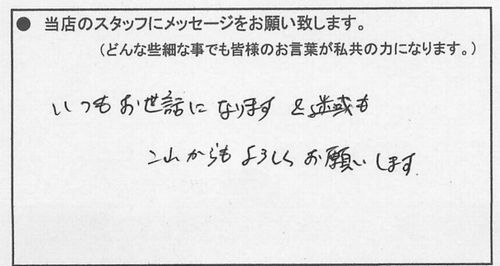 ● 当店のスタッフにメッセージをお願い致します。
（どんな些細な事でも皆様のお言葉が私共の力になります。）
いつもお世話になります
これからもよろしくお願いします